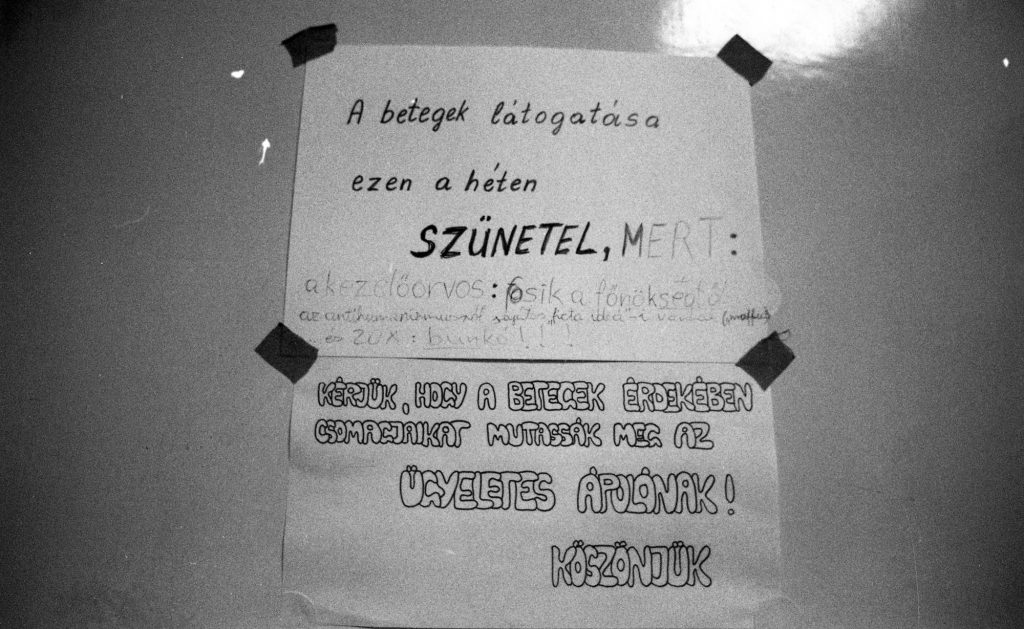 A betegek látogatása
ezen a héten
SZÜNETEL, MERT:
a kezelőorvos: fosik a főnökségtől
az antihumanizmusról
és ZÜX: bunkó!!!
KÉRJÜK, HOGY A BETEGEK ÉRDEKÉBEN
CSOMAGJAIKAT MUTASSÁK MEG AZ
ÜGYELETES ÁPOLÓNAK!
KÖSZÖNJÜK